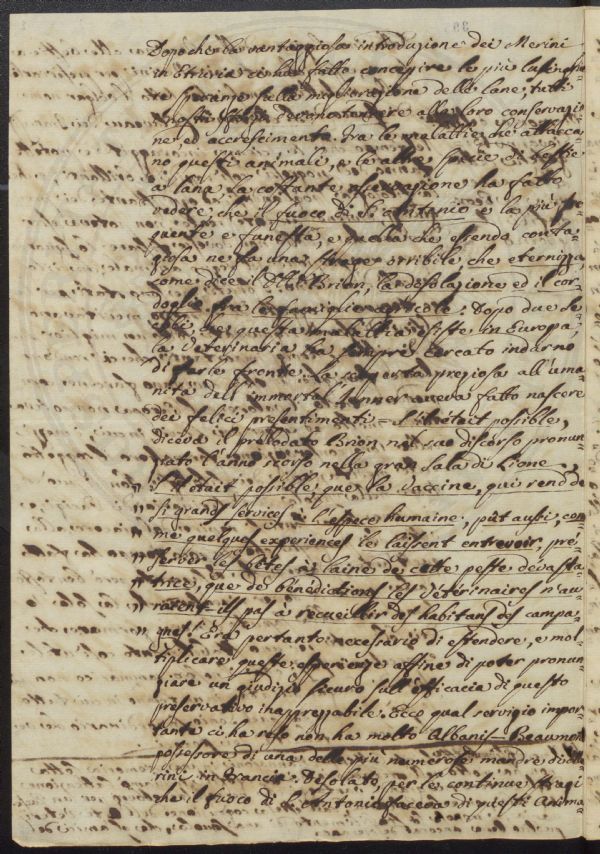 Dopochè la vantaggiosa introduzione dei Merini
in Etruria ci ha fatto concepire le più lusinghie-
re speranze sulla migliorazione delle lane, tutti
i nostri devono tendere alla loro conservazi-
ne, ed accrescimento. Tra le malattie che attacca-
no questi animali, e le altre specie di bestie
a lana la costante osservazione ha fatto
vedere, che il fuoco di S. Antonio è la più fre-
quente e funesta, e quella che essendo conta-
giosa ne fa una strage orribile che eternizza,
come dice il Brion, la desolazione ed il cor-
doglio fra le famiglie agricole. Dopo due se-
coli, che questa malattia esiste in Europa,
la Veterinaria ha sempre cercato indarno
di farle fronte. La scoperta preziosa all'uma-
nità dell'immortal Jenner aveva fatto nascere
dei felici presentimenti = S'il était possible,
diceva il prelodato Brion nel suo discorso pronun-
ziato l'anno scorso nella gran Sala di Lione,
S'il était possible que la vaccine, qui rend de
si grands services à l'espece humaine, pût aussi, com-
me quelques experiences le laissent entrevoir, pré-
server les bêtes à laine de cette peste devasta-
trice, que de bénédictions les Vétérinaires n'au-
raient ils pas à recueillir des habitans des campa-
gnes! Era pertanto necessario di estendere, e mol-
tiplicare queste esperienze affine di poter pronun-
ziare un giudizio sicuro sull'efficacia di questo
preservativo inapprezzabile. Ecco qual servigio impor-
tante ci ha reso non ha molto Albanis-Beaumont
possessore di una delle più numerose mandre di Me-
rini in Francia. Desolato per le continue stragi
che il fuoco di S. Antonio faceva di questi Anima-